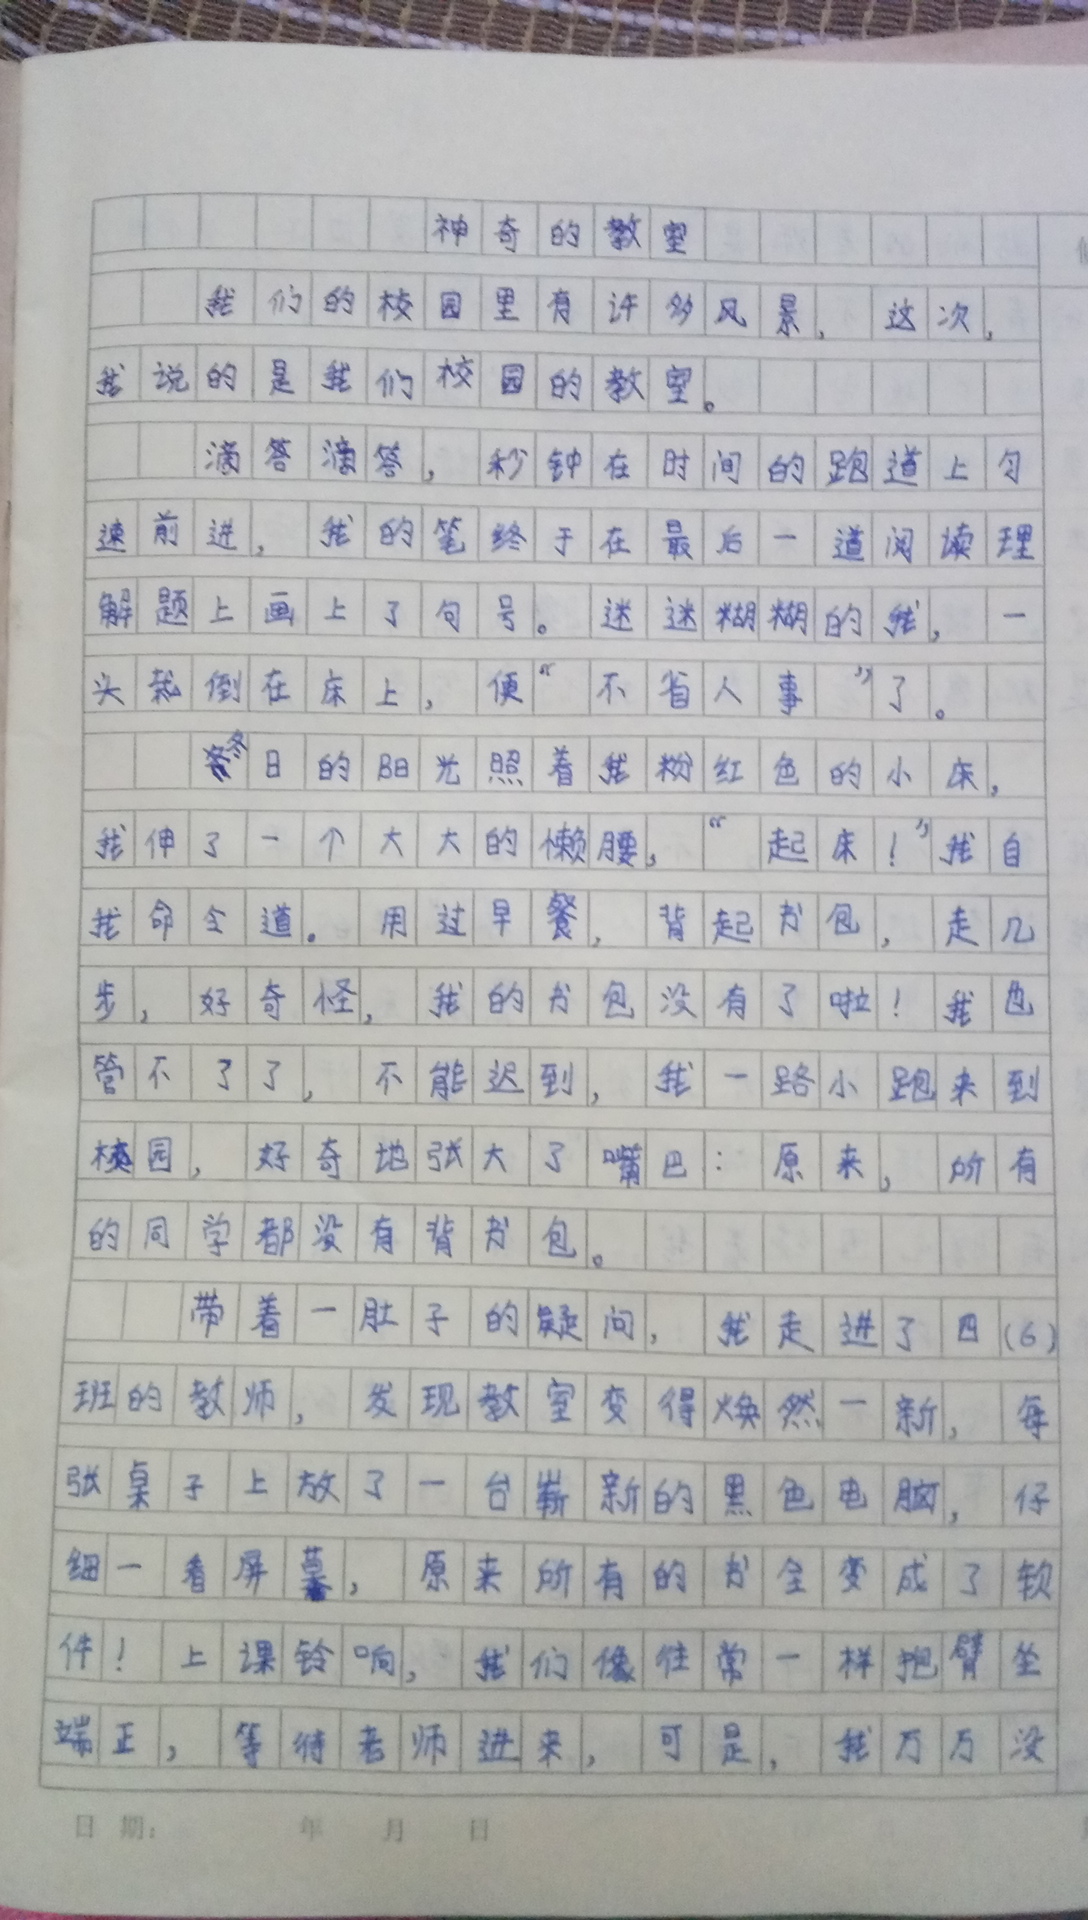 神奇的教室
我们的校园里有许多风景，这次，
我说的是我们校园的教室。
滴答滴答，秒钟在时间的跑道上匀
速前进，我的笔终于在最后一道阅读理
解题上画上了句号。迷迷糊糊的我，一
头栽倒在床上，便“不省人事”了。
冬日的阳光照着我粉红色的小床，
我伸了一个大大的懒腰，“起床！”我自
我命令道。用过早餐，背起书包，走几
步，好奇怪，我的书包没有了啦！我也
管不了了，不能迟到，我一路小跑来到
校园，好奇地张大了嘴巴：原来，所有
的同学都没有背书包。
带着一肚子的疑问，我走进了四(6)
班的教师，发现教室变得焕然一新，每
张桌子上放了一台崭新的黑色电脑，仔
细一看屏幕，原来所有的书全变成了软
件！上课铃响，我们像往常一样抱臂坐
端正，等待老师进来，可是，我万万没
日期： 年 月 日